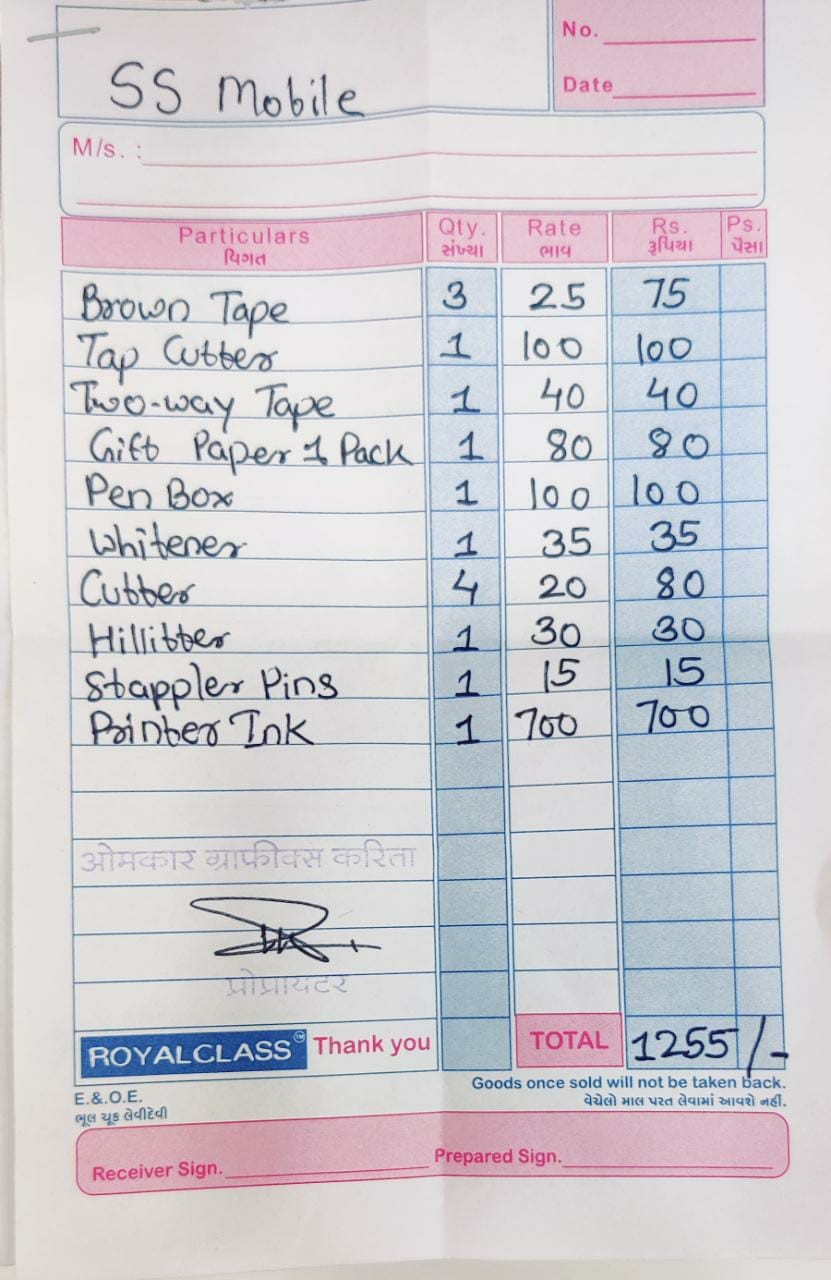 No.
SS Mobile
Date
M/s. :
Particulars Qty. Rate Rs. Ps.
વિગત સંખ્યા ભાવ રૂપિયા પૈસા
Brown Tape 3 25 75
Tap Cutter 1 100 100
Two-way Tape 1 40 40
Gift Paper 1 Pack 1 80 80
Pen Box 1 100 100
Whitener 1 35 35
Cutter 4 20 80
Hillitter 1 30 30
Stappler Pins 1 15 15
Printer Ink 1 700 700
ओमकार ग्राफीक्स करिता
प्रोप्रायटर
ROYALCLASS™ Thank you TOTAL 1255/-
E.&.O.E. Goods once sold will not be taken back.
ભૂલ ચૂક લેવીદેવી વેચેલો માલ પરત લેવામાં આવશે નહીં.
Receiver Sign. Prepared Sign.